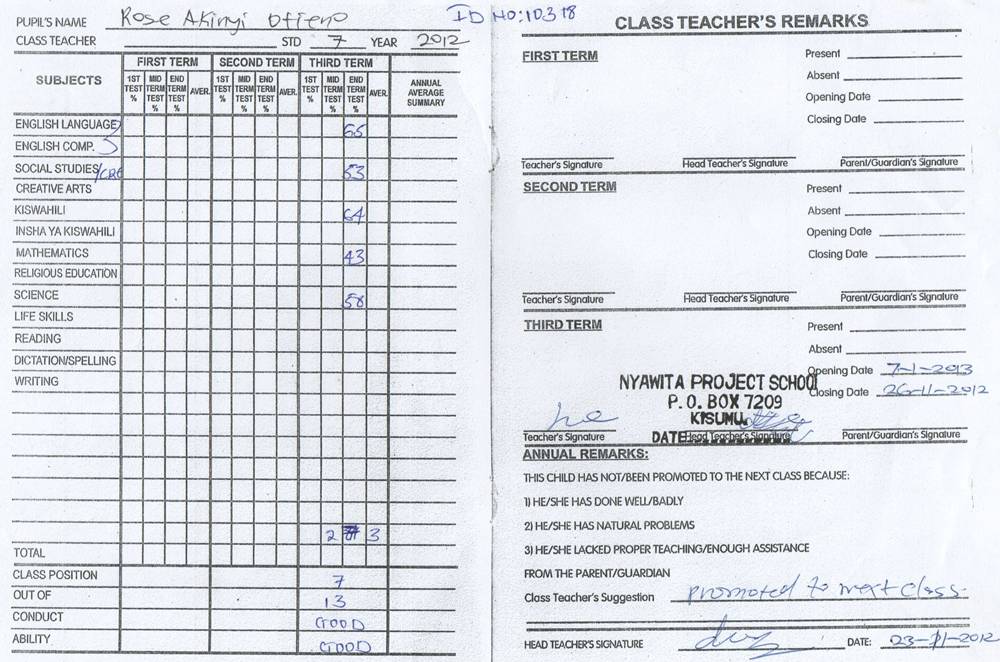 PUPIL'S NAME Rose Akinyi Otieno ID NO: 10318
CLASS TEACHER STD 7 YEAR 2012
SUBJECTS FIRST TERM SECOND TERM THIRD TERM ANNUAL AVERAGE SUMMARY
1ST TEST % MID TERM TEST % END TERM TEST % AVER. 1ST TEST % MID TERM TEST % END TERM TEST % AVER. 1ST TEST % MID TERM TEST % END TERM TEST % AVER.
ENGLISH LANGUAGE 65
ENGLISH COMP.
SOCIAL STUDIES/CRE 53
CREATIVE ARTS
KISWAHILI 64
INSHA YA KISWAHILI
MATHEMATICS 43
RELIGIOUS EDUCATION
SCIENCE 58
LIFE SKILLS
READING
DICTATION/SPELLING
WRITING
2 8 3
TOTAL
CLASS POSITION 7
OUT OF 13
CONDUCT GOOD
ABILITY GOOD
CLASS TEACHER'S REMARKS
FIRST TERM
Present
Absent
Opening Date
Closing Date
Teacher's Signature Head Teacher's Signature Parent/Guardian's Signature
SECOND TERM
Present
Absent
Opening Date
Closing Date
Teacher's Signature Head Teacher's Signature Parent/Guardian's Signature
THIRD TERM
Present
Absent
Opening Date 7-1-2013
Closing Date 26-11-2012
NYAWITA PROJECT SCHOOL
P. O. BOX 7209
KISUMU
DATE
Teacher's Signature Head Teacher's Signature Parent/Guardian's Signature
ANNUAL REMARKS:
THIS CHILD HAS NOT/BEEN PROMOTED TO THE NEXT CLASS BECAUSE:
1) HE/SHE HAS DONE WELL/BADLY
2) HE/SHE HAS NATURAL PROBLEMS
3) HE/SHE LACKED PROPER TEACHING/ENOUGH ASSISTANCE
FROM THE PARENT/GUARDIAN
Class Teacher's Suggestion promoted to next class.
HEAD TEACHER'S SIGNATURE DATE: 23-11-2012